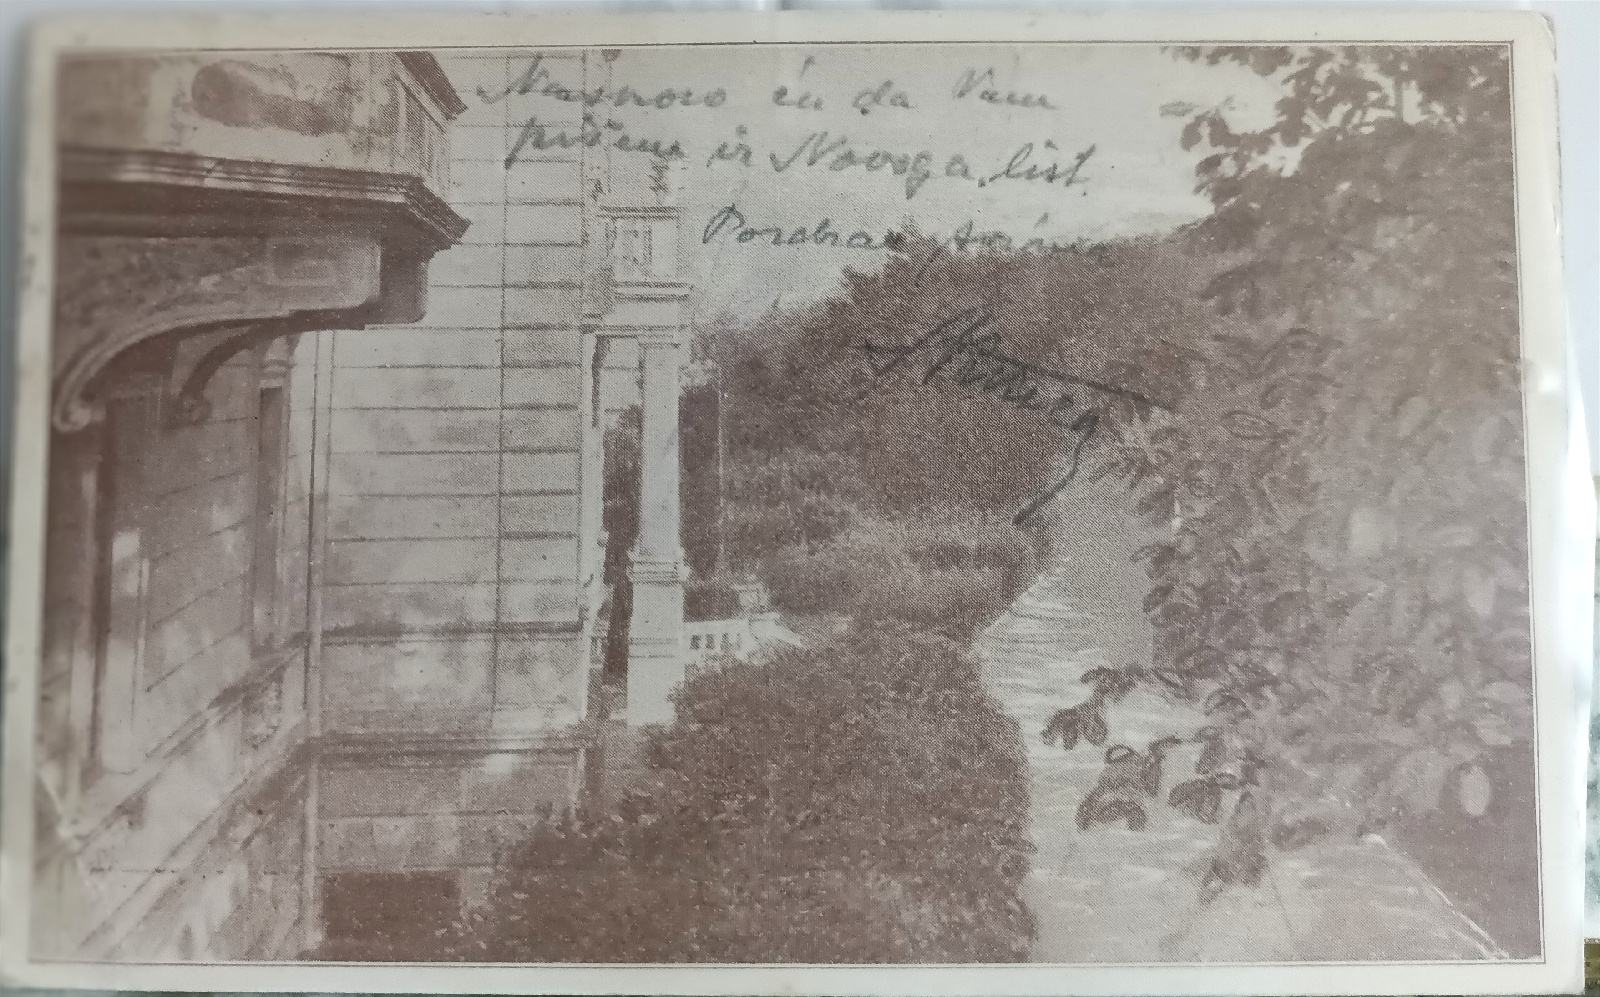 Naskoro ću da Vam
pišem iz Novoga list
Pozdrav